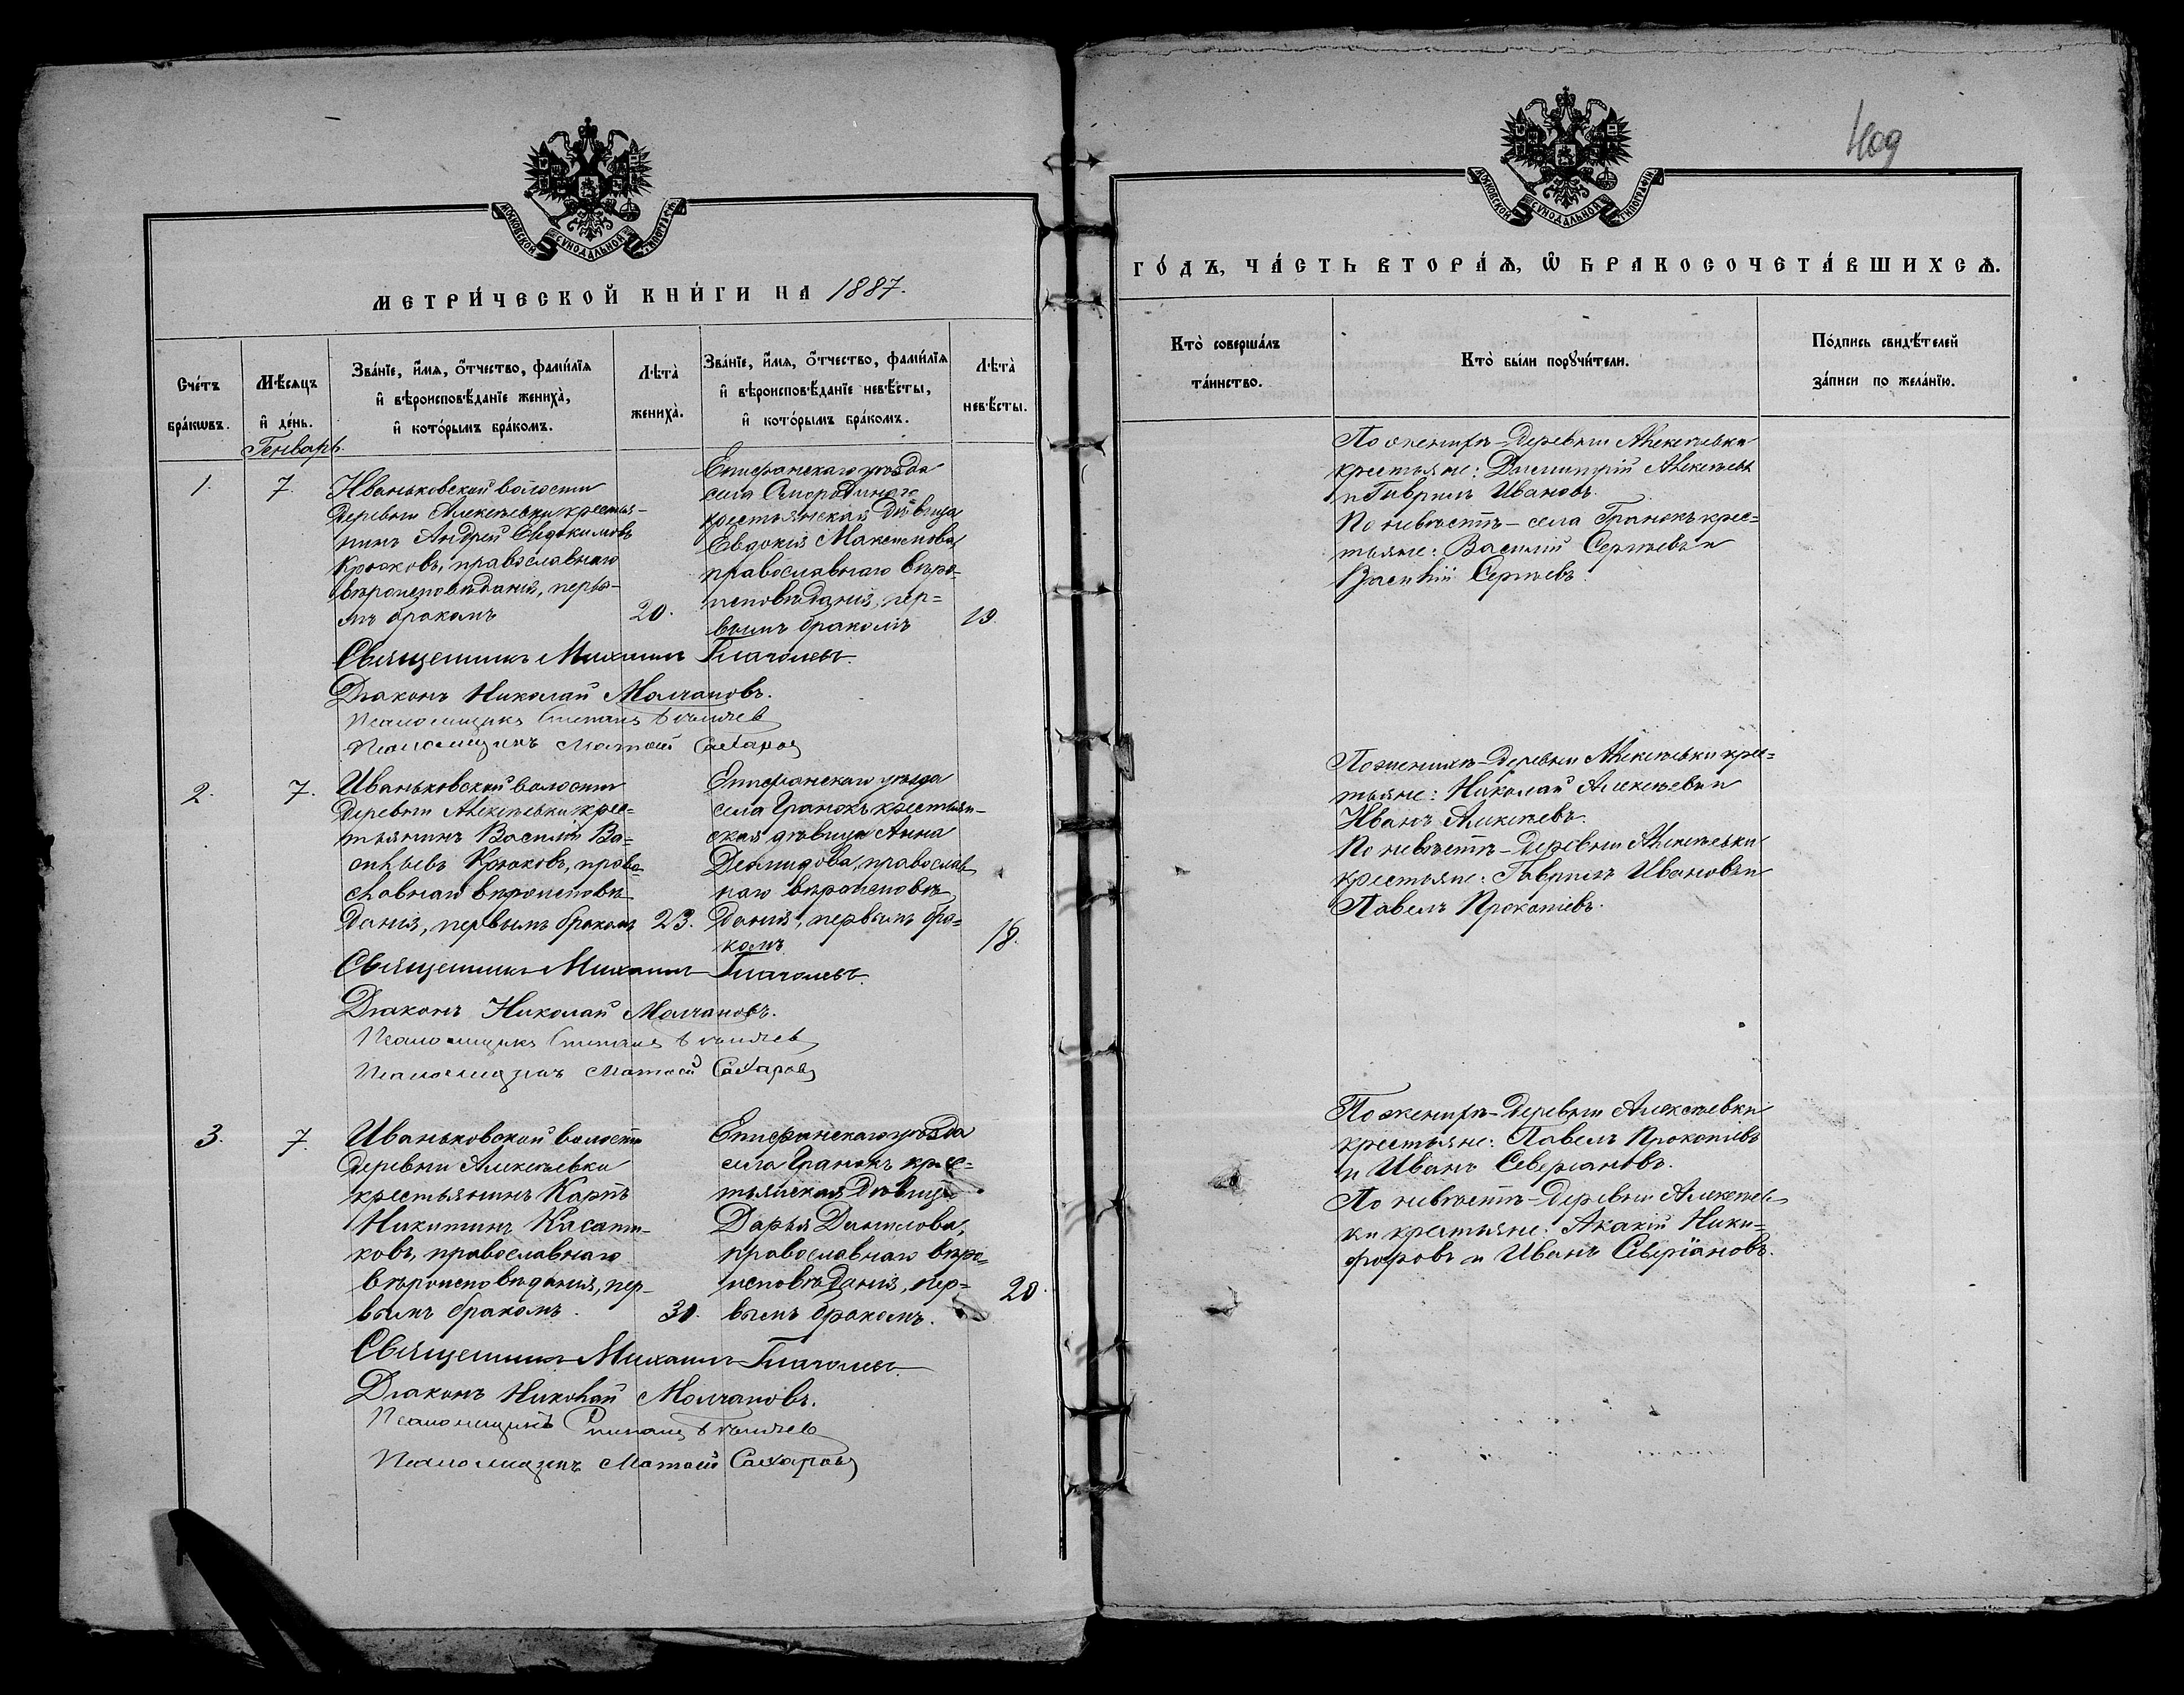 МОСКОВСКОЙ СѴНОДАЛЬНОЙ ТИПОГРАФІИ
МЕТРИ́ЧЕСКОЙ КНИ́ГИ НА 1887.
Сче́тъ бра́кѡвъ.
Мѣ́сяцъ и҆ де́нь.
Зва́нїе, и҆́мя, ѻ҆́тчество, фами́лїя и҆ вѣроисповѣ́данїе жениха̀, и҆ кото́рымъ бра́комъ.
Лѣта̀ жениха̀.
Зва́нїе, и҆́мя, ѻ҆́тчество, фами́лїя и҆ вѣроисповѣ́данїе невѣ́сты, и҆ кото́рымъ бра́комъ.
Лѣта̀ невѣ́сты.
Генварь.
1.
7.
Иваньковской волости
деревни Алексѣевки крестья-
нинъ Андрей Евдокимовъ
Крюковъ, православнаго
вѣроисповѣданія, первы-
мъ бракомъ
20.
Епифанскаго уѣзда
села Смородинаго
крестьянская дѣвица
Евдокія Максимова,
православнаго вѣро-
исповѣданія, пер=
вымъ бракомъ
19.
Священникъ Михаилъ Глаголевъ.
Діаконъ Николай Молчановъ.
Псаломщикъ Степанъ
Псаломщикъ Матѳей Сахаровъ
2.
7.
Иваньковской волости
деревни Алексѣевки крес-
тьянинъ Василій Ва-
сильевъ Крюковъ, право-
славнаго вѣроисповѣ-
данія, первымъ бракомъ
23.
Епифанскаго уѣзда
села Гранокъ крестьян-
ская дѣвица Анна
Демидова, православ-
наго вѣроисповѣ-
данія, первымъ бра=
комъ
18.
Священникъ Михаилъ Глаголевъ.
Діаконъ Николай Молчановъ.
Псаломщикъ Степанъ
Псаломщикъ Матѳей Сахаровъ
3.
7.
Иваньковской волости
деревни Алексѣевки
крестьянинъ Карпъ
Никитинъ Касат-
ковъ, православнаго
вѣроисповѣданія, пер-
вымъ бракомъ.
30.
Епифанскаго уѣзда
села Гранокъ крес=
тьянская дѣвица
Дарья Данилова,
православнаго вѣро-
исповѣданія, пер-
вымъ бракомъ.
20.
Священникъ Михаилъ Глаголевъ.
Діаконъ Николай Молчановъ.
Псаломщикъ Степанъ
Псаломщикъ Матѳей Сахаровъ
409
МОСКОВСКОЙ СѴНОДАЛЬНОЙ ТИПОГРАФІИ
ГО́ДЪ, ЧА́СТЬ ВТОРА́Ѧ, Ѽ БРАКОСОЧЕТА́ВШИХСѦ.
Кто̀ соверша́лъ та́инство.
Кто̀ бы́ли порꙋчи́тели.
По́дпись свидѣ́телей за́писи по жела́нїю.
По женихѣ - деревни Алексѣевки
крестьяне: Димитрій Алексѣевъ
и Гавріилъ Ивановъ.
По невѣстѣ - села Гранокъ крес=
тьяне: Василій Сергѣевъ и
Василій Сергѣевъ.
По женихѣ - деревни Алексѣевки крес=
тьяне: Николай Алексѣевъ и
Иванъ Алексѣевъ.
По невѣстѣ - деревни Алексѣевки
крестьяне: Гавріилъ Ивановъ и
Павелъ Прокопіевъ.
По женихѣ - деревни Алексѣевки
крестьяне: Павелъ Прокопіевъ
и Иванъ Северіановъ.
По невѣстѣ - деревни Алексѣев-
ки крестьяне: Акакій Ники=
форовъ и Иванъ Северіановъ.